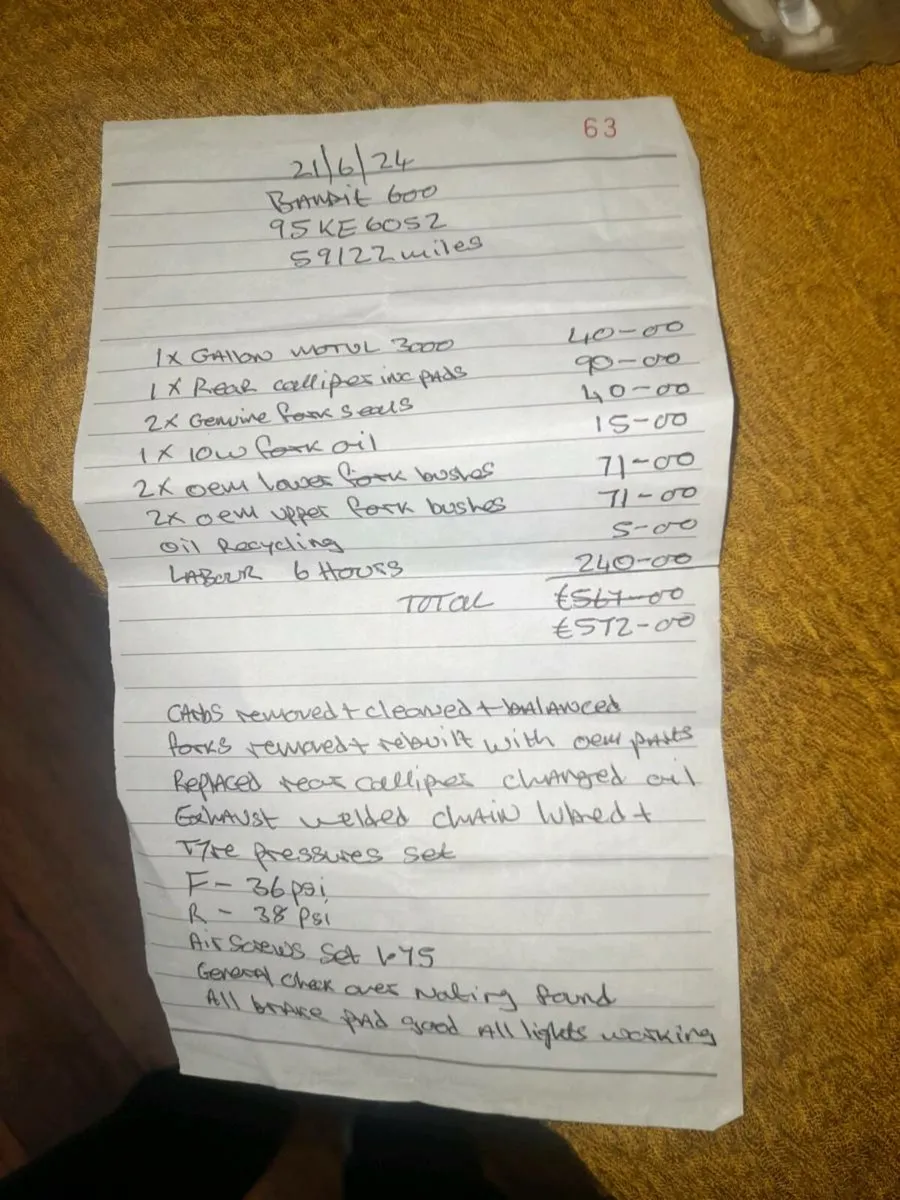 63
21/6/24
BANDIT 600
95 KE 6052
59122 miles
1X GAllON MOTUL 3000 40-00
1 X Rear calliper inc pads 90-00
2X Genuine fork seals 40-00
1 X 10w fork oil 15-00
2X oem lower fork bushes 71-00
2X oem upper fork bushes 71-00
Oil Recycling 5-00
LABOUR 6 Hours 240-00
TOTAL €567-00
€572-00
CARbS removed + cleaned + balanced
forks removed + rebuilt with oem parts
Replaced rear calliper changed oil
Exhaust welded chain lubed +
Tyre pressures set
F - 36 psi
R - 38 Psi
Air Screws set 1.75
General check over Nothing found
All brake pad good All lights working